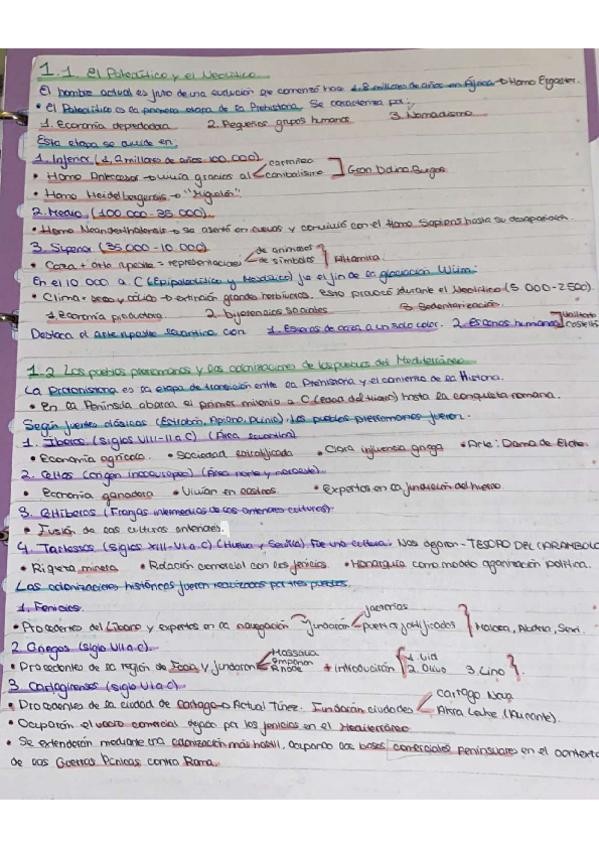 1.1. El Paleolítico y el Neolítico.
El hombre actual es fruto de una evolución que comenzó hace 1.8 millones de años en África → Homo Ergaster.
• El Paleolítico es la primera etapa de la Prehistoria. Se caracteriza por:
1. Economía depredadora 2. Pequeños grupos humanos 3. Nomadismo
Esta etapa se divide en:
1. Inferior (1,2 millones de años - 100.000)
• Homo Antecessor → vivía gracias al carroñeo canibalismo Gran Dolina Burgos
• Homo Heidelbergensis → "Miguelón"
2. Medio (100.000 - 35.000).
• Homo Neanderthalensis → se asentó en cuevas y convivió con el Homo Sapiens hasta su desaparición.
3. Superior (35.000 - 10.000)
• Caza + arte rupestre = representaciones de animales de símbolos Altamira.
En el 10.000 a.C (Epipaleolítico y Mesolítico) fue el fin de la glaciación Würm.
• Clima: seco y cálido → extinción grandes herbívoros. Esto provocó durante el Neolítico (5.000-2500).
1. Economía productora 2. Diferencias sociales 3. Sedentarización.
Destaca el arte rupestre levantino con 1. Escenas de caza a un solo color. 2. Escenas humanas
1.2 Los pueblos prerromanos y las colonizaciones de los pueblos del Mediterráneo
La Protohistoria es la etapa de transición entre la Prehistoria y el comienzo de la Historia.
• En la Península abarca el primer milenio a.C (edad del hierro) hasta la conquista romana.
Según fuentes clásicas (Estrabón, Apiano, Plinio). Los pueblos prerromanos fueron.
1. Iberos (siglos VIII-II a.C) (Área levantina)
• Economía agrícola. • Sociedad jerarquizada • Clara influencia griega • Arte: Dama de Elche.
2. Celtas (origen indoeuropeo) (Área norte y noroeste).
• Economía ganadera • Vivían en castros • Expertos en la fundición del hierro
3. Celtíberos (Franjas intermedias de las anteriores culturas).
• Fusión de las culturas anteriores.
4. Tartessos (siglos XIII-VI a.C) (Huelva y Sevilla) Fue una cultura. Nos dejaron - TESORO DEL CARAMBOLO
• Riqueza minera • Relación comercial con los fenicios. • Monarquía como modelo organización política.
Las colonizaciones históricas fueron realizadas por tres pueblos.
1. Fenicios.
• Procedentes del Líbano y expertos en la navegación fundaron factorías puertos fortificados Malaca, Abdera, Sexi.
2. Griegos (siglo VII a.C).
• Procedentes de la región de Focia y fundaron Massalia Emporion Rhode + introducción 1. Vid 2. Olivo 3. Lino
3. Cartagineses (siglo VI a.C)
• Procedentes de la ciudad de Cartago → Actual Túnez. Fundarán ciudades Cartago Nova Akra Leuke (Alicante).
• Ocuparán el vacío comercial dejado por los fenicios en el Mediterráneo
• Se extenderán mediante una colonización más hábil, ocupando las bases comerciales peninsulares en el contexto
de las Guerras Púnicas contra Roma.